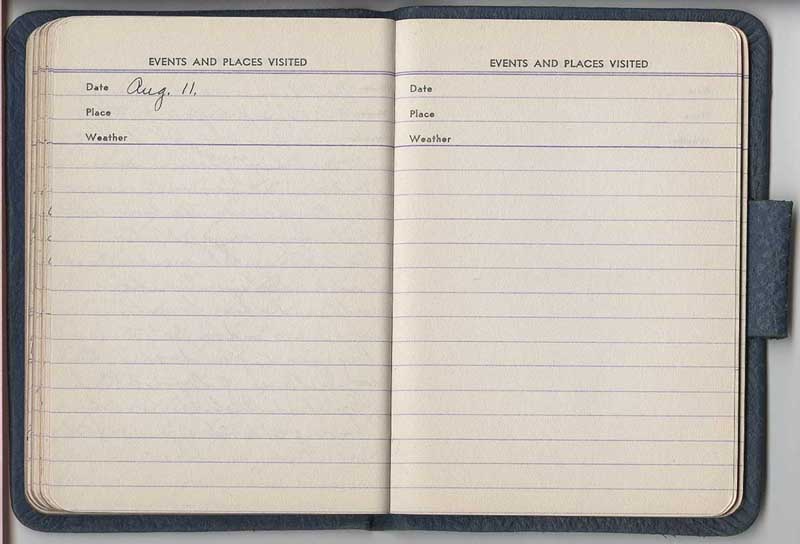 EVENTS AND PLACES VISITED
Date Aug. 11.
Place
Weather
EVENTS AND PLACES VISITED
Date
Place
Weather